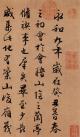 永和九年歲在癸丑暮春
之初會于會稽山陰之蘭亭
脩禊事也羣賢畢至少長
咸集此地有崇山峻領茂